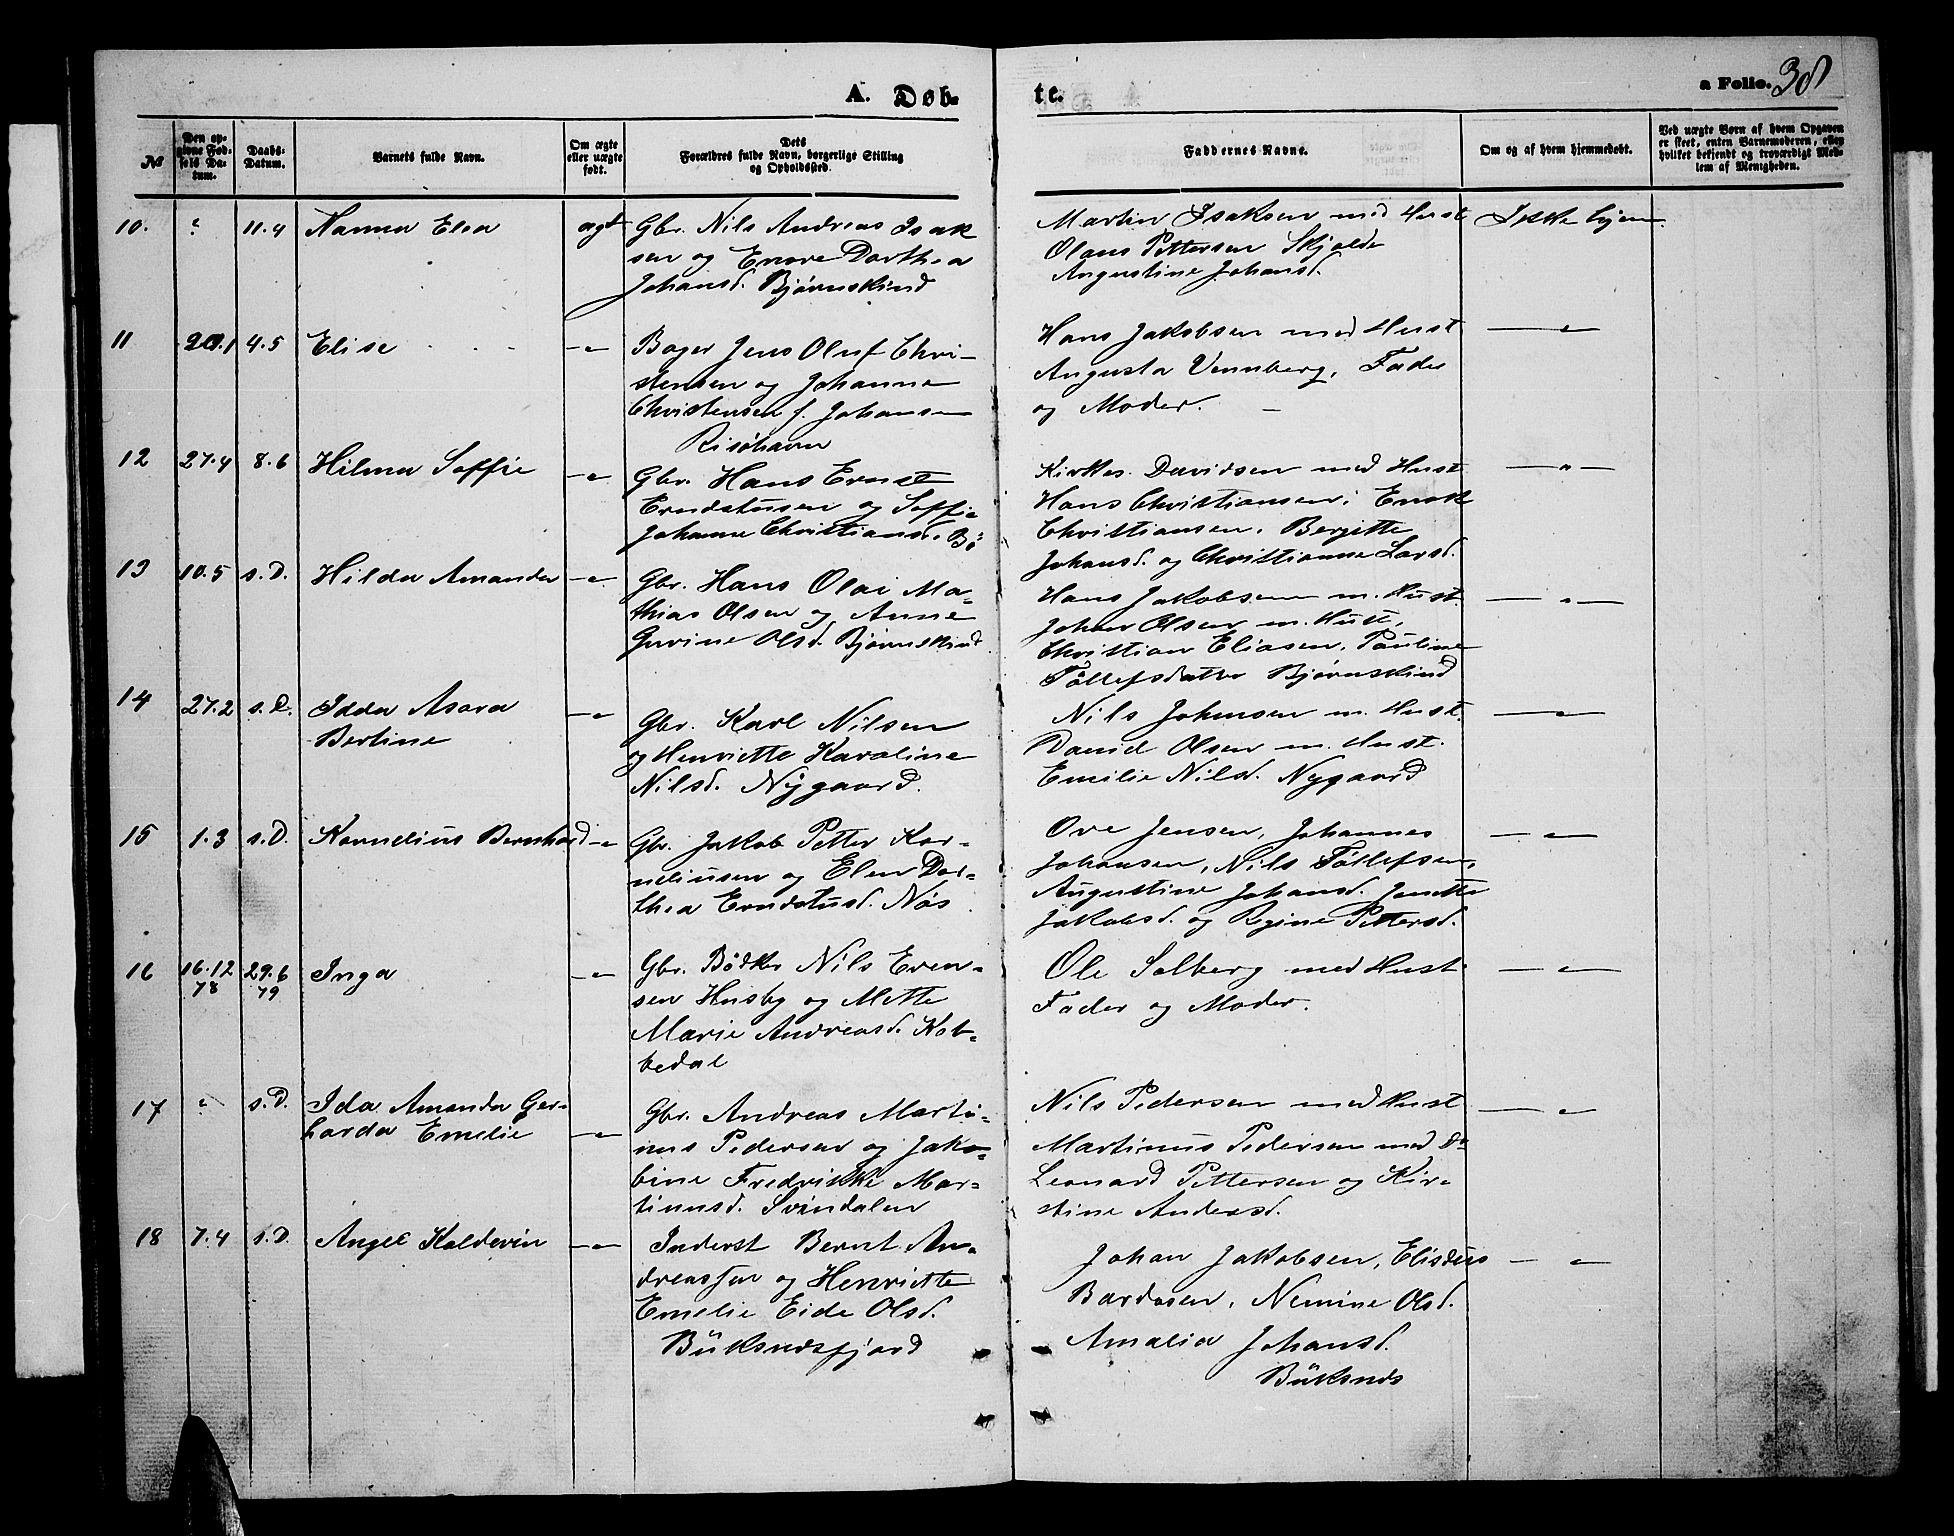 A. Døb-
te.
a Folio. 30
№
Den op-
givne Fød-
sels Da-
tum.
Daabs-
Datum.
Barnets fulde Navn.
Om ægte
eller uægte
født.
Dets
Forældres fulde Navn, borgerlige Stilling
og Opholdssted.
Faddernes Navne.
Om og af hvem hjemmedøbt.
Ved uægte Børn af hvem Opgaven
er skeet, enten Barnemoderen, eller
hvilket bekjendt og troværdigt Med-
lem af Menigheden.
10. " 11.4 Hanna Elea ægt Gbr. Nils Andreas Isak
sen og Enore Dorthea
Johansd. Bjørnskind
Martin Isaksen med Hust
Olaus Pettersen Skjolde
Angustine Johansd.
Ikke hjem.
11 20.1 4.5 Elise - " - Bager Jens Oluf Chri-
stensen og Johanne
Christensen f. Johansen
Risøhavn
Hans Jakobsen med Hust
Augusta Vennberg, Fader
og Moder. -
- " -
12 27.4 8.6 Hilma Soffie - " - Gbr. Hans Ernst
Erndstusen og Soffie
Johanne Christiansd. Bø
Kirkes. Davidsen med Hust
Hans Christiansen, Enok
Christiansen, Bergitte
Johansd. og Christianne Larsd.
- " -
13 10.5 s.D. Hilda Amanda - " - Gbr. Hans Olai Ma-
thias Olsen og Anne
Gurine Olsd. Bjørnskind
Hans Jakobsen m. Hust.
Johan Olsen m. Hust,
Christian Eliasen, Pauline
Tøllefsdatter Bjørnskind
- " -
14 27.2 s.D. Idda Asora
Bertine
- " - Gbr. Karl Nilsen
og Henriette Karoline
Nilsd. Nygaard.
Nils Johnsen m. Hust.
David Olsen m. Hust.
Emilie Nilsd. Nygaard
- " -
15 1.3 s.D. Kornelius Bernhard - " - Gbr. Jakob Petter Kor-
neliusen og Elen Dor-
thea Erndstusd. Nøs
Ove Jensen, Johannes
Johansen, Nils Tøllefsen,
Augustine Johansd. Jenette
Jakobsd. og Regine Pettersd.
- " -
16 16.12
78 29.6
79 Inga - " - Gbr. Bødker Nils Even-
sen Husby og Mette
Marie Andreasd. Kob-
bedal
Ole Solberg med Hust
Fader og Moder.
- " -
17 " s.D. Ida Amanda Ger-
harda Emelie - " -
Gbr. Andreas Marti-
nus Pedersen og Jako-
bine Fredrikke Mar-
tinusd. Svindalen
Nils Pedersen med Hust
Martinus Pedersen med Do
Leonard Pettersen og Kir-
stine Andersd.
- " -
18 7.4 s.D. Angel Kolderin - " - Inderst Bernt An-
dreassen og Henriette
Emelie Eide Olsd.
Büksnesfjord
Johan Jakobsen, Elisæus
Bardosen, Nemine Olsd.
Amalia Johansd.
Büksnes
- " -